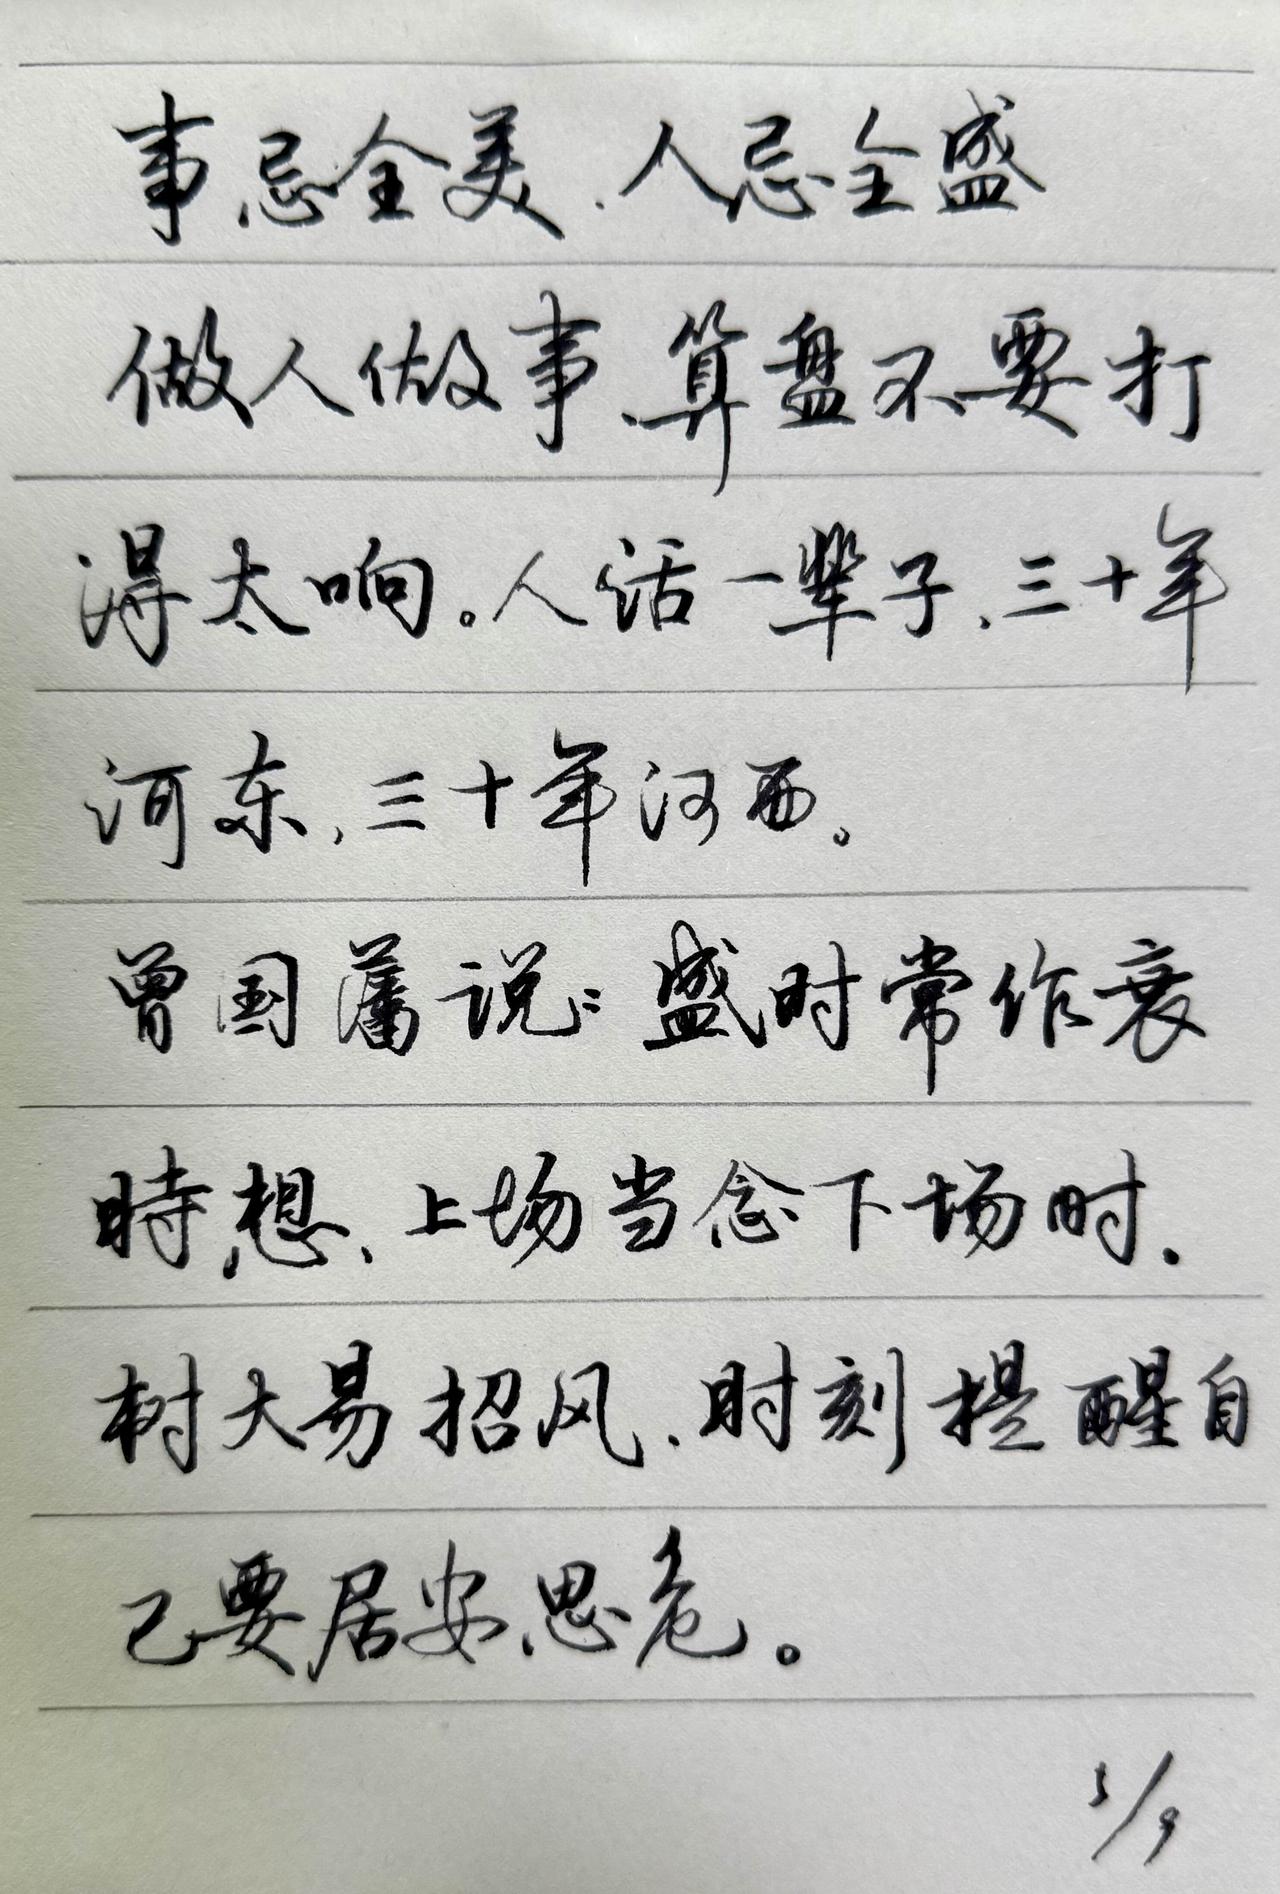 事忌全美、人忌全盛
做人做事、算盘不要打
得太响。人活一辈子、三十年
河东,三十年河西。
曾国藩说:盛时常作衰
時想、上场当念下场时.
树大易招风、时刻提醒自
己要居安思危。